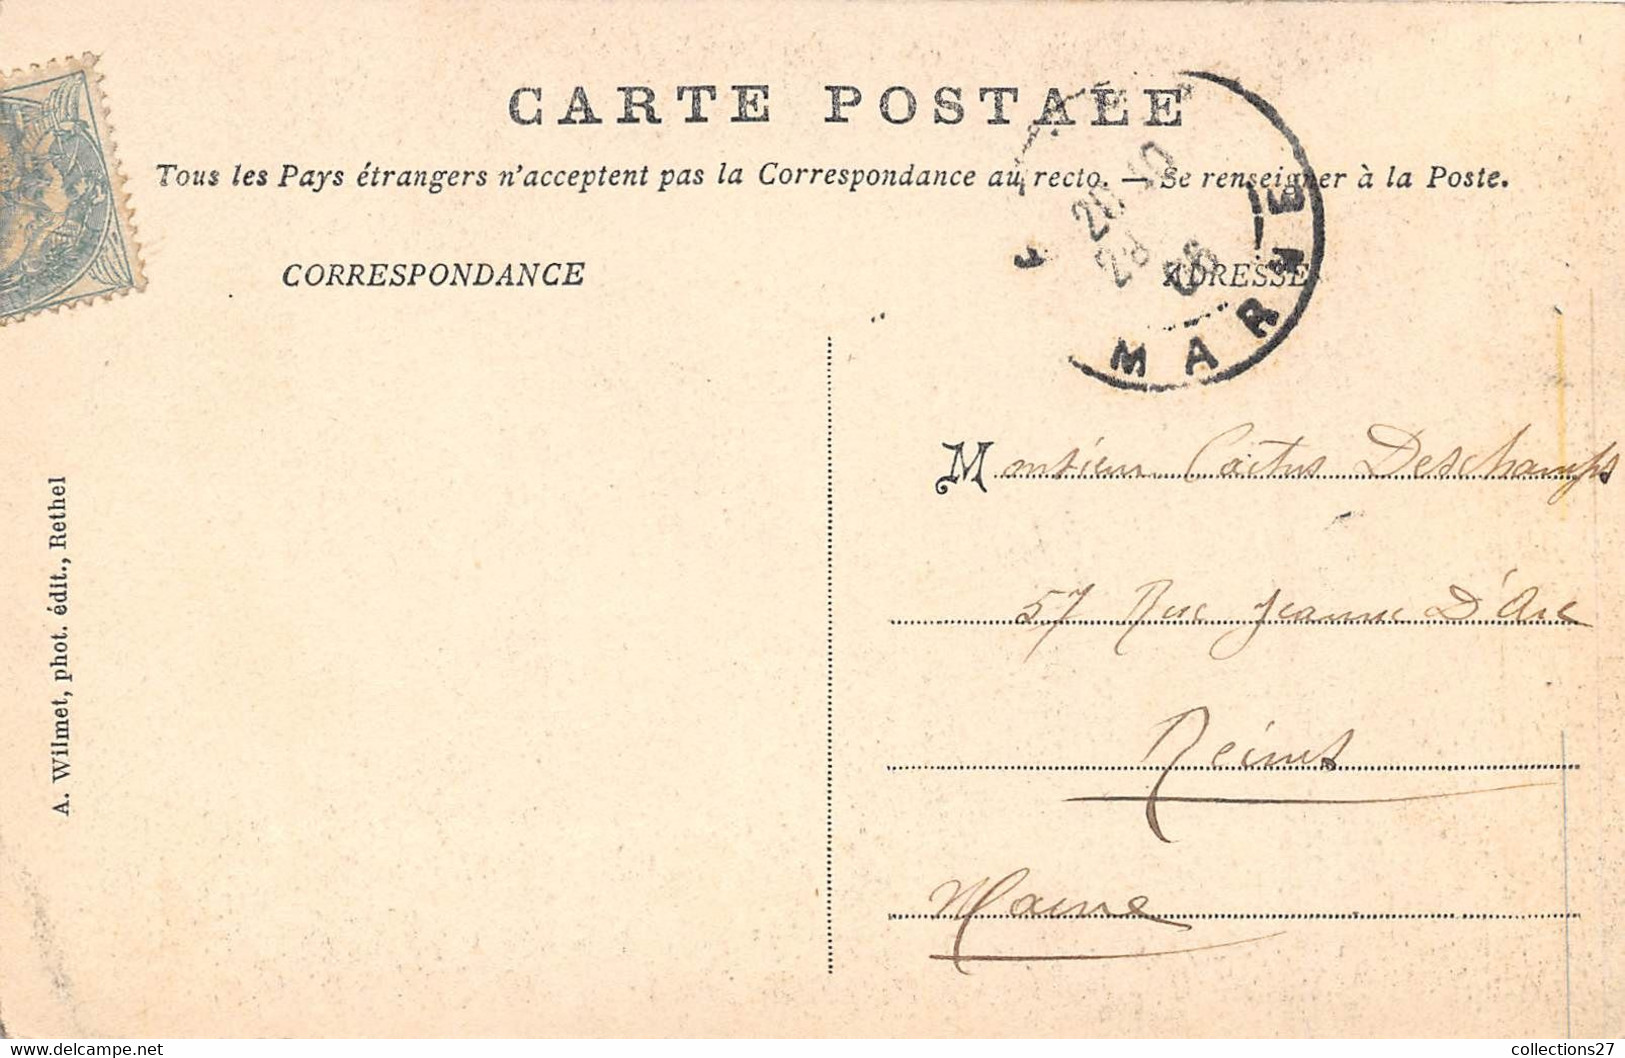 CARTE POSTALE
Tous les Pays étrangers n'acceptent pas la Correspondance au recto. — Se renseigner à la Poste.
CORRESPONDANCE
ADRESSE
MARNE
Monsieur Cactus Deschamps
57 Rue Jeanne D'Arc
Reims
Marne
A. Wilmet, phot. édit., Rethel
collections27